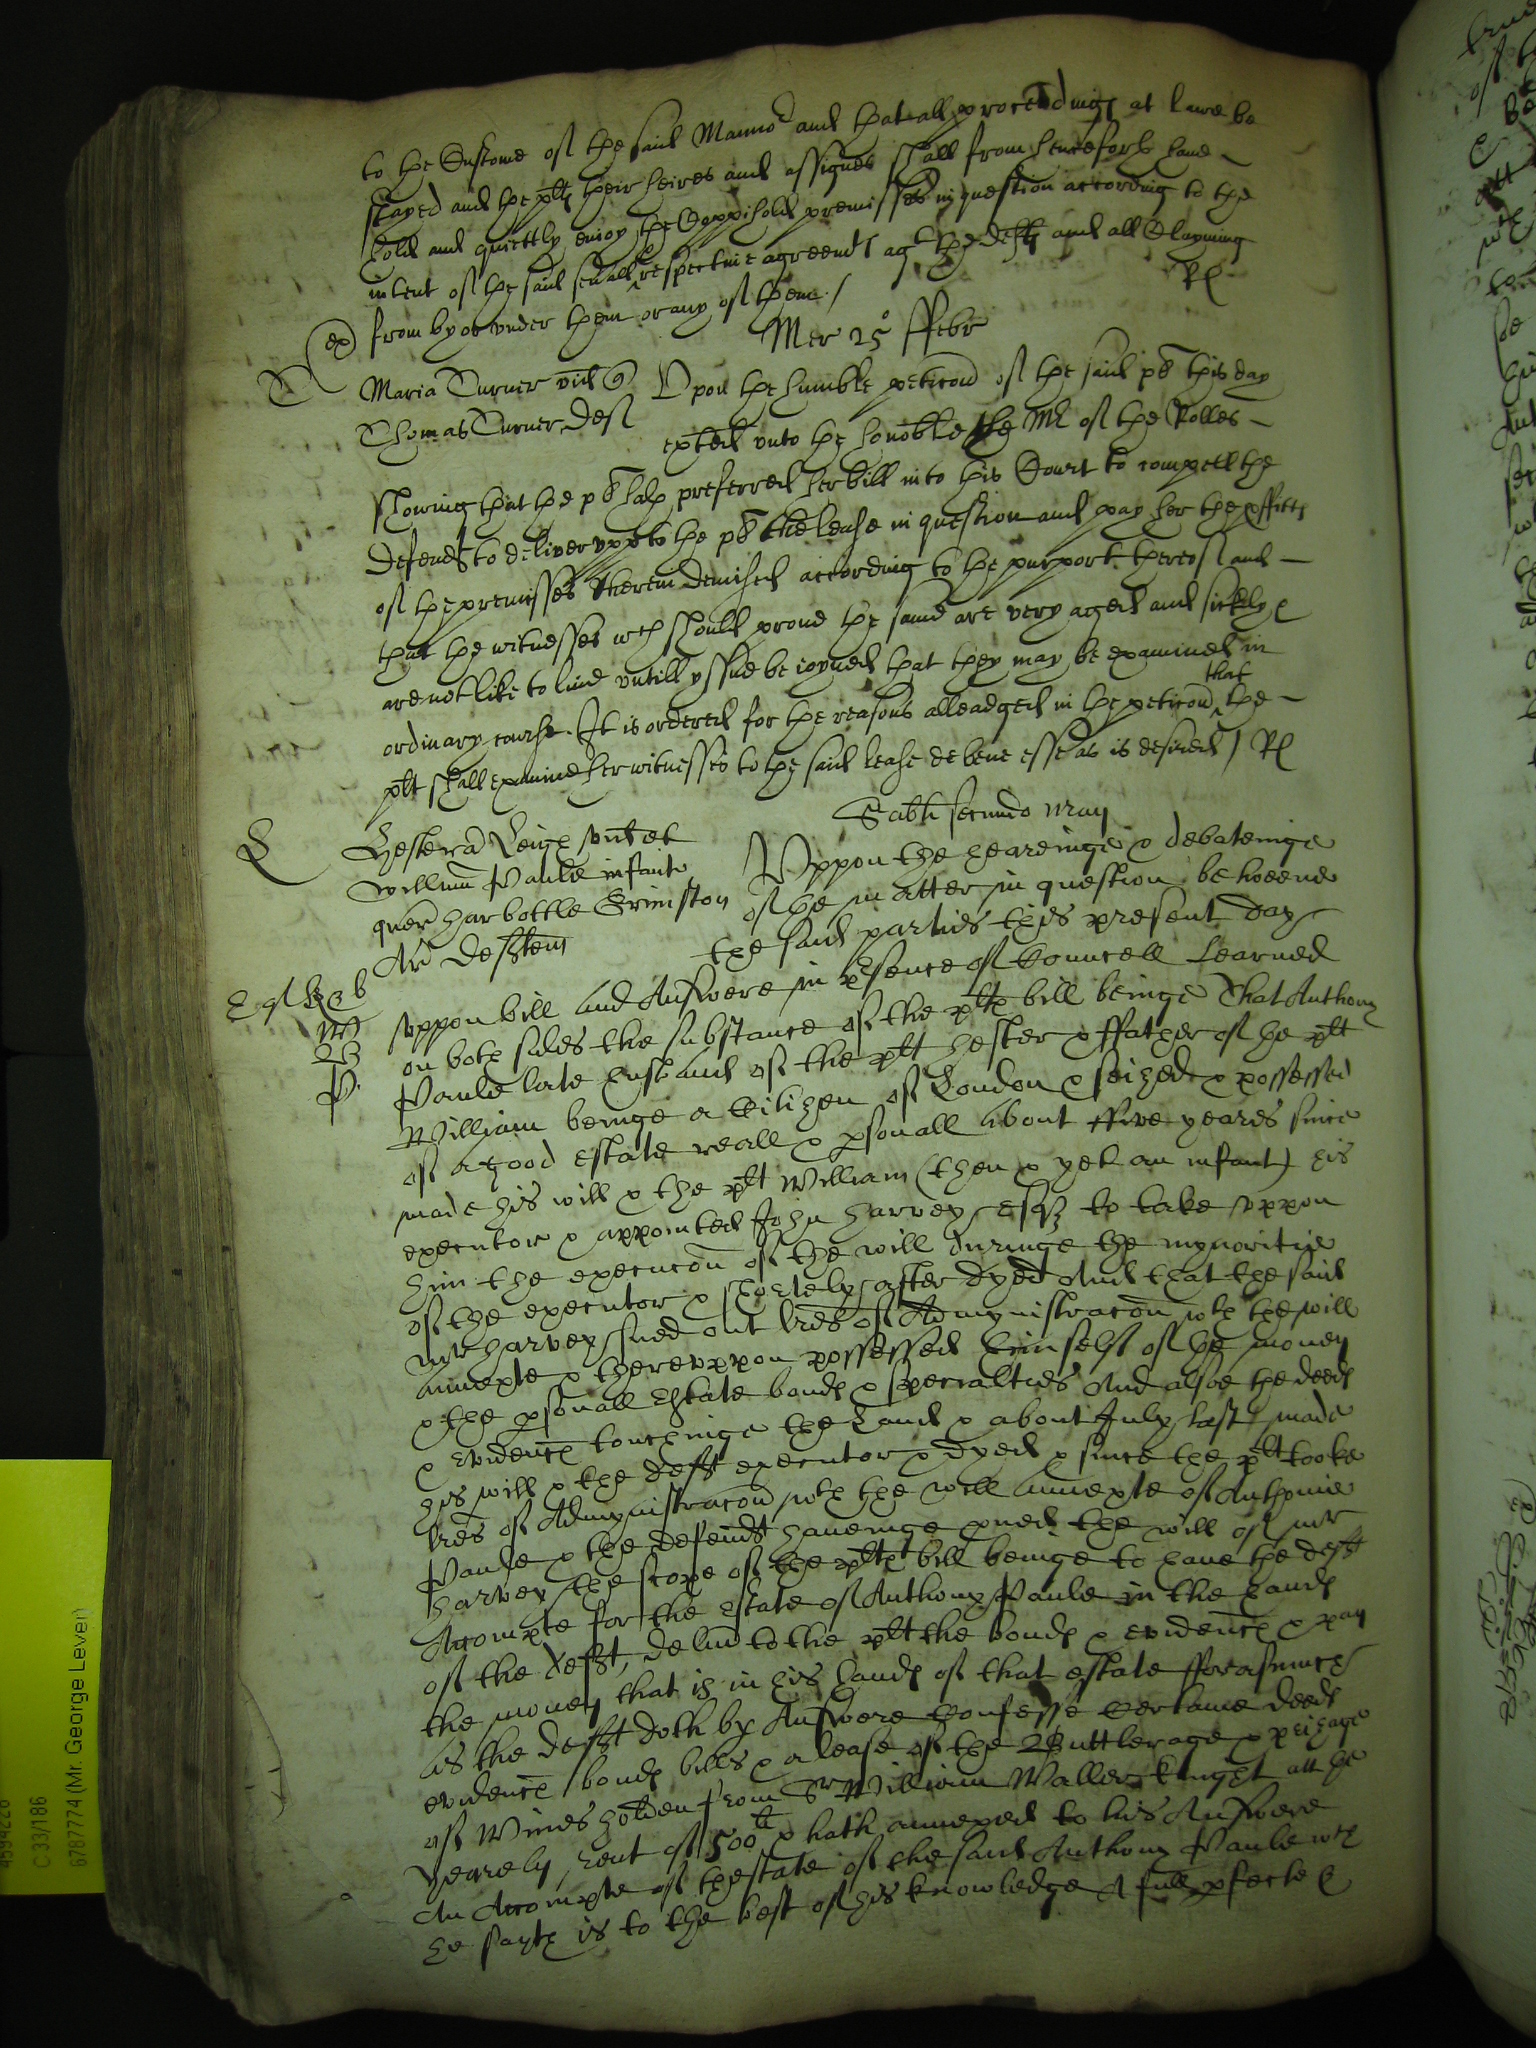 to the Custome of the said Manno and that all proceedings at Lawe be
stayed and the plts their heires and assignes shall from henceforth haue
hold and quiettly enioy the Coppihold premisses in question according to the
intent of the said seuall respectiue agreemts agt the defts and all Clayming
from by or vnder them or any of them / Rl
ex
Mer 25° ffebr
Maria Turner vid Q
Thomas Turner Def
Vpon the humble peticon of the said pt this day
exhted vnto the honoble the Mr of the Rolles
showing that the pt hath preferred her bill into this Court to compell the
defendt to deliver vpp to the pt the lease in question and pay her the pffitts
of the premisses therein demised according to the purport thereof and
that the witnesses wch should proue the same are very aged and sickly &
are not like to liue vntill yssue be ioyned that they may be examined in
ordinary course. It is ordered for the reasons alleadged in the peticon that the
plt shall examine her witnesses to the said lease de bene esse as is desired / Rl
Sabti secundo may
Hestera Leigh et
Willimu Paule infants
quer Harbottle Grimston
Ar deften
Vppon the heareinge & debateinge
of the matter in question betweene
the said parties this present day
vppon bill and Answere in psence of Councell Learned
on both sides the substance of the plts bill beinge That Anthony
Paule late husband of the plt Hester & ffather of the plt
William beinge a Citizen of London & seized & possessed
of a good estate reall & psonall about ffive yeares since
made his will & the plt William (then & yet an infant) his
executor & appointed John Harvey Esqr to take vppon
him the execucon of the will duringe the mynoritie
of the executor & shortely after dyed And that the said
mr Harvey sued out lres of Admynistracon wth the will
annexte & therevppon possessed himselfe of the money
& the psonall Estate bonds & specialties And alsoe the deeds
& evidence touchinge the Land & about July last made
his will & the deft executor & dyed & since the plt tooke
lres of Admynistracon wth the will annexte of Anthonie
Paule & the defendt haueinge proued the will of mr
Harvey the scope of the plts bill beinge to haue the deft
Accompte for the Estate of Anthony Paule in the hands
of the deft, deliu to the plt the bonds & evidence & pay
the money that is in his hands of that estate fforasmuch
as the deft doth by Answere Confesse Certaine deeds
evidence bonds bills & a lease of the Buttlerage & prizage
of Wines holden from Sr William Waller knight att the
yearely rent of 500li & hath annexed to his Answere
An Accompte of thestate of the said Anthony Paule wch
he sayth is to the best of his knowledge A full pfecte &
C 33/186
6787774 (Mr. George Lever)